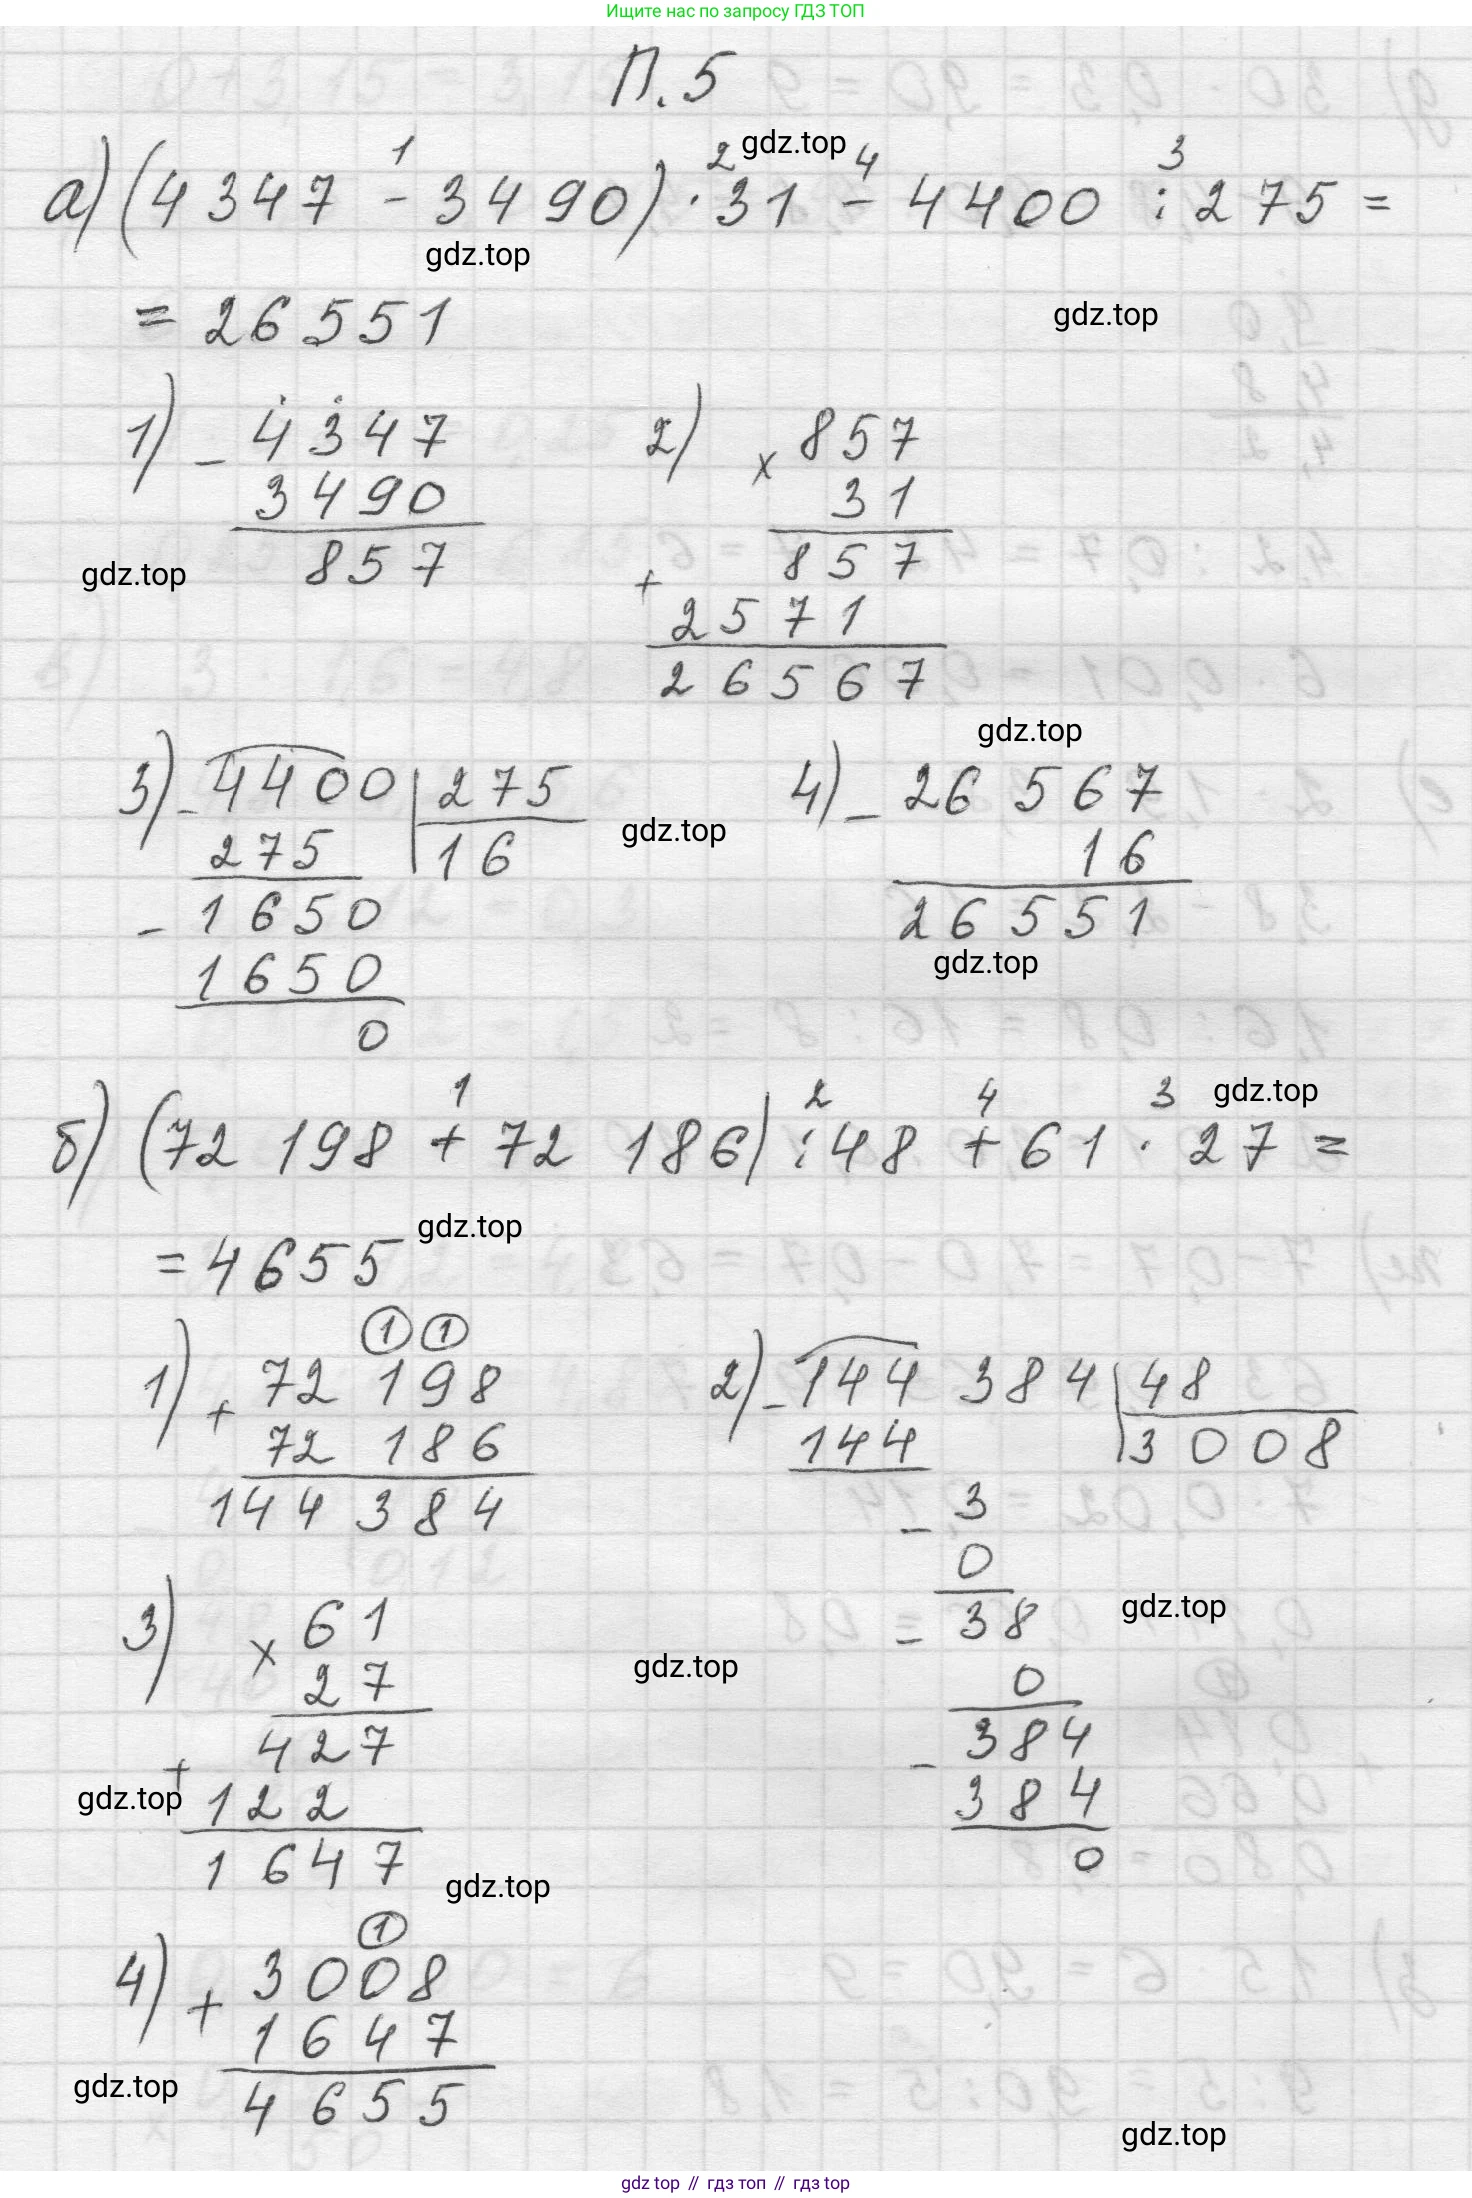 Ищите нас по запросу ГДЗ ТОП
П.5
gdz.top
1 2 4 3
а) (4347 - 3490) · 31 - 4400 : 275 =
gdz.top
= 26551
gdz.top
1) - 4347
3490
857
2) x 857
31
857
+ 2571
26567
gdz.top
gdz.top
3) - 4400 | 275
275 16
- 1650
1650
0
gdz.top
4) - 26 567
16
26 551
gdz.top
1 2 4 3
gdz.top
б) (72 198 + 72 186) : 48 + 61 · 27 =
= 4655
gdz.top
1 1
1) + 72 198
72 186
144 384
2) - 144 384 | 48
144 3008
- 3
0
- 38
0
- 384
384
0
gdz.top
3) x 61
27
427
+ 122
1647
gdz.top
gdz.top
gdz.top
1
4) + 3008
1647
4655
gdz.top
gdz.top
gdz top // гдз топ // гдз top